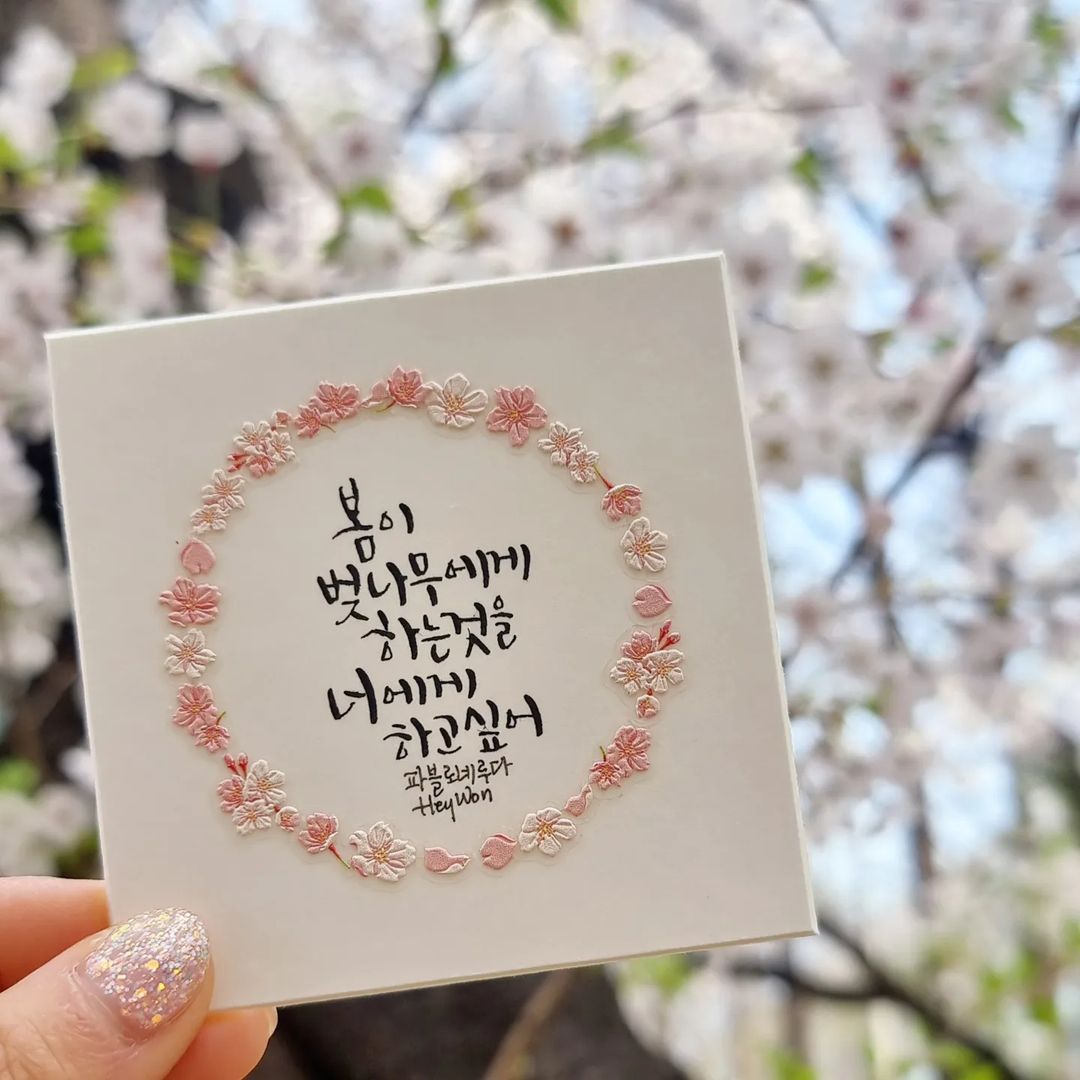 봄이
벚나무에게
하는것을
너에게
하고싶어
파블로네루다
HeyWon